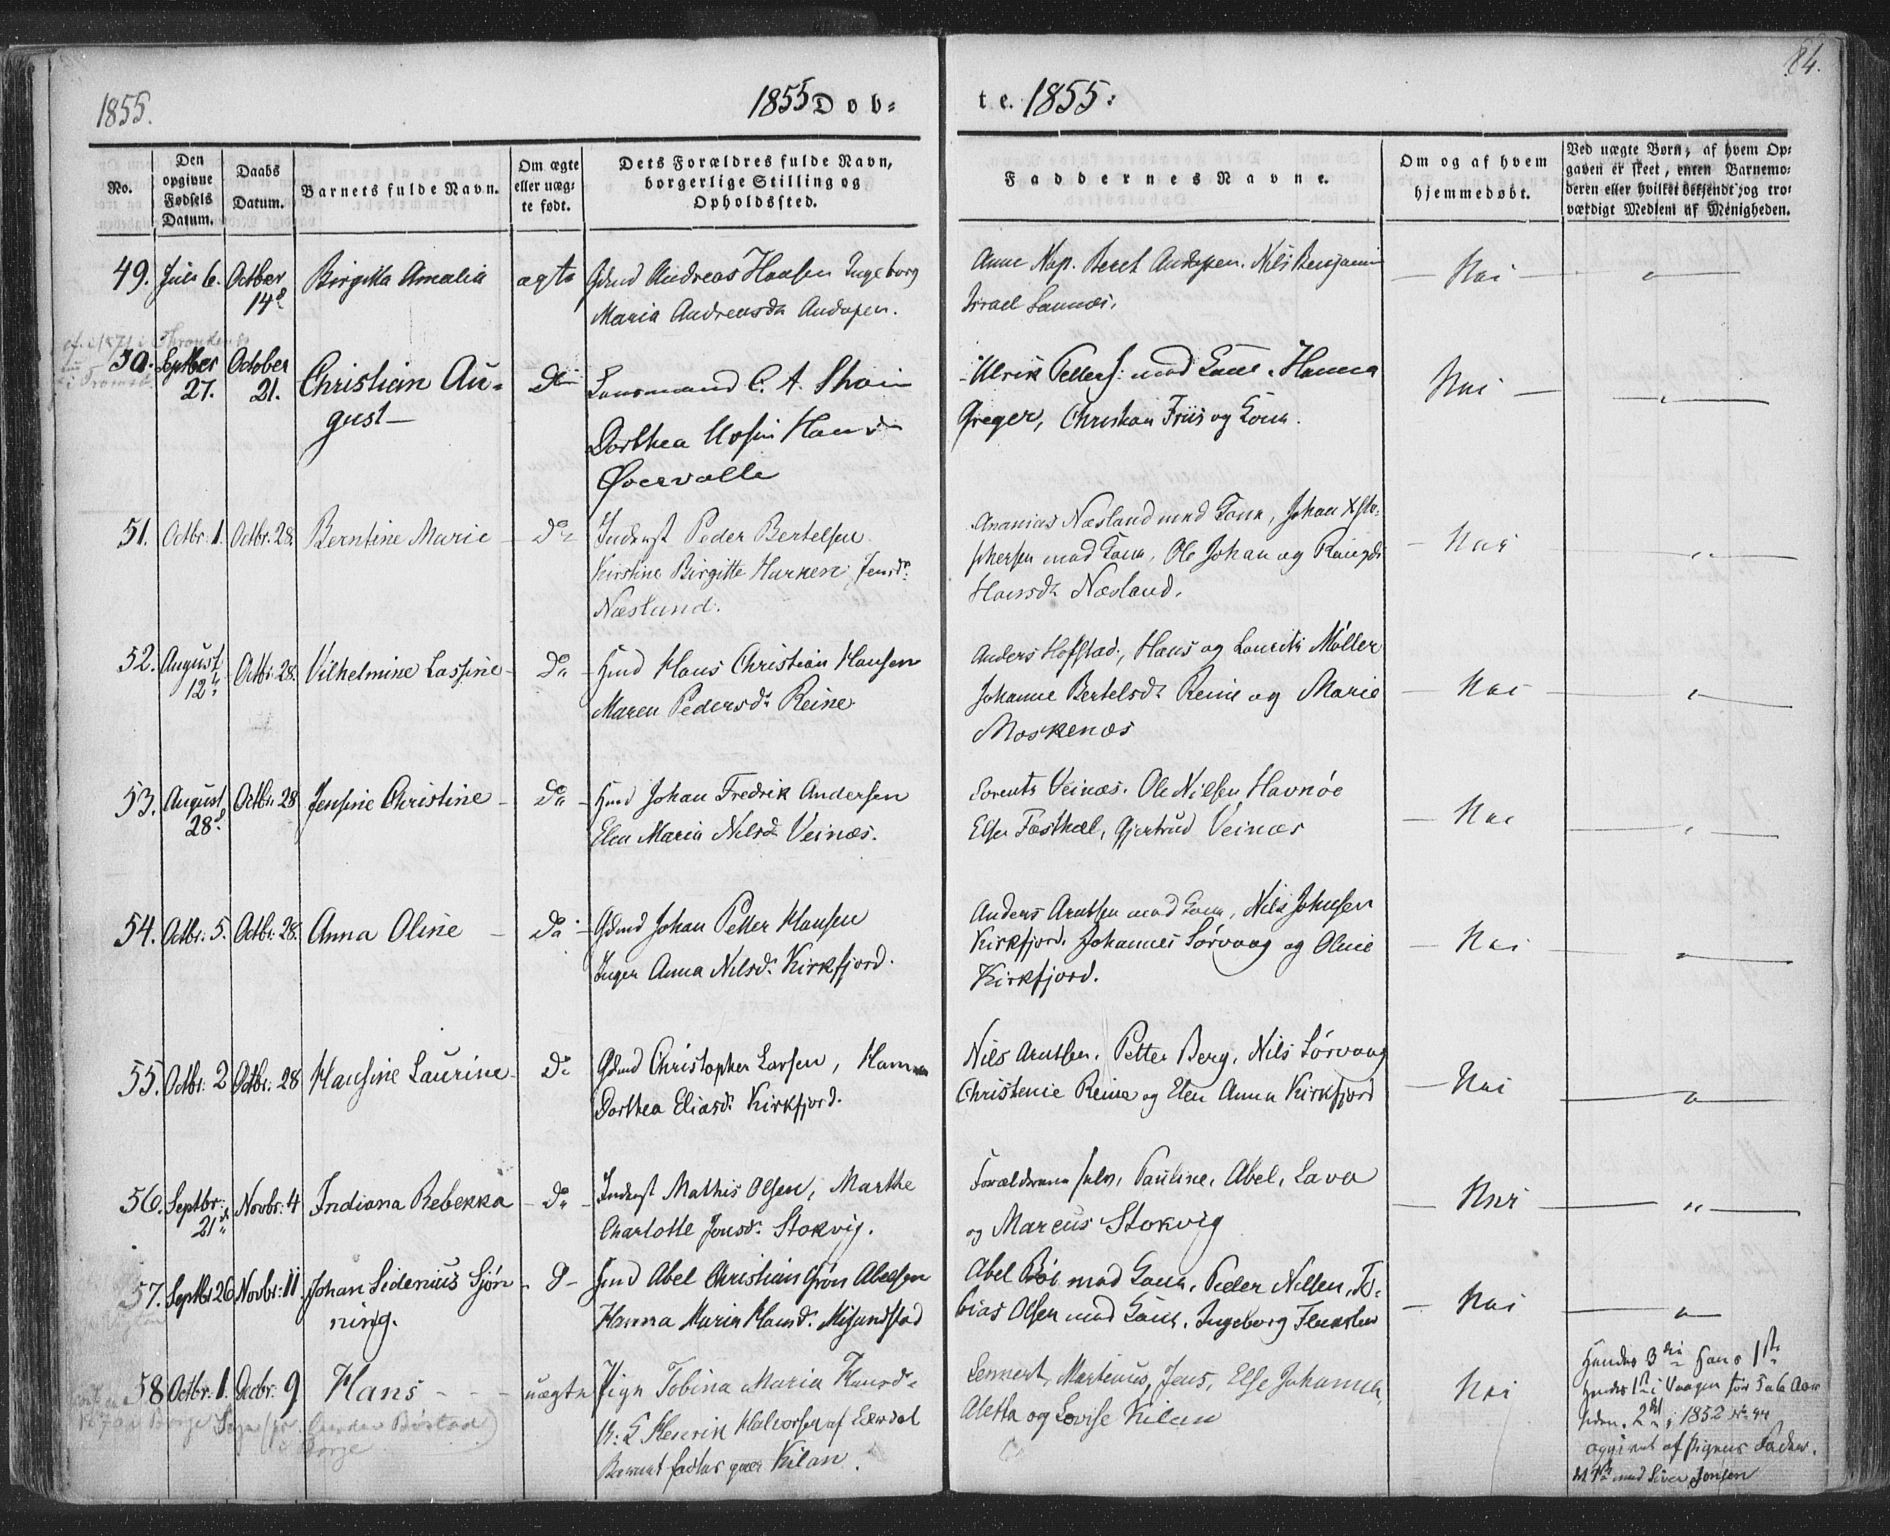 84.
1855.
1855 Dob=
te. 1855:
No.
Den opgivne Fødsels Datum.
Daabs Datum.
Barnets fulde Navn.
Om ægte eller uæg= te født.
Dets Forældres fulde Navn, borgerlige Stilling og Opholdssted.
Faddernes Navne.
Om og af hvem hjemmedøbt.
Ved uægte Børn, af hvem Op= gaven er skeet, enten Barnemo= deren eller hvilket bekjendt, og tro= værdigt Medlem af Menigheden.
49. Juli 6. October 14d Birgitta Amalia ægte Gdmd Andreas Hansen Ingeborg
Maria Andreasdr Andopen.
Anne Nap. Beret Andopen. Nils Benjamin
Israel Sannæs.
Nei
50. Septber 27. October 21. Christian Au=
gust
Do Lensmand C. A. Thom
Dorthea Hansd
Øvervalle
Ulrik Petters: med Kone. Hanna
Greger, Christian Friis og Kone.
Nei
51. Octbr: 1. Octbr. 28. Berntine Marie Do Inderst Peder Bertelsen
Kirstine Birgitte Jensdr
Næsland.
Ananias Næsland med Kone, Johan Xsto=
phersen med Kone, Ole Johan og
Hansdr Næsland.
Nei
52. August 12te Octbr 28. Vilhelmine Lassine Do Hmd Hans Christian Hansen
Maren Pedersdr Reine
Anders Hofstad, Hans og Laurits Møller
Johanne Bertelsdr Reine og Marie
Moskenæs
Nei
53. August 28d Octbr: 28 Jensine Christine Do Hmd Johan Fredrik Andersen
Elen Maria Nilsdr Veinæs.
Lorents Veinæs. Ole Nilsen Havnøe
Else Fæsthæl, Gjertrud Veinæs
Nei
54. Octbr: 5. Octbr: 28. Anna Oline Do Gdmd Johan Petter Hansen
Inger Anna Nilsdr Kirkfjord.
Anders Arntsen med Kone, Nils Johnsen
Kirkfjord, Johannes Sørvaag og Oline
Kirkfjord.
Nei
55. Octbr: 2 Octbr: 28 Hansine Laurine Do Gdmd Christopher Larsen, Hanna
Dorthea Eliasdr Kirkfjord.
Nils Arntsen. Petter Berg, Nils Sørvaag
Christense Reine og Elen Anna Kirkfjord
Nei
56. Septbr: 21d Novbr: 4 Indiana Rebekka Do Inderst Mathis Olsen, Marthe
Charlotte Jonsdr Stokvig.
Forældrene selv, Pauline, Abel, Lava
og Marcus Stokvig
Nei
57. Septbr 26 Novbr: 11. Johan Sidenius Sjøn
ning.
D Hmd Abel Christian Grøn Abelsen
Hanna Maria Hansdr Misundstad
Abel Bøe med Kone, Peder Nilsen, To=
bias Olsen med Kone, Ingeborg
Nei
58 Octbr: 1. Decbr: 9 Hans uægte Pige Tobina Maria Hansdr
U: K Henrik Halvorsen af
Barnet fødtes paa Kilan.
Lennert, Martinus, Jens, Else Johanna,
Aletta og Lovise Kilan
Nei
Hendes 3die Hans 1ste
Hendes 1ste i Vaagen for 5 a 6 Aar
siden. 2det i 1852 No 44
opgivet af Pigens Fader.
det 1ste med Siver Jonsen